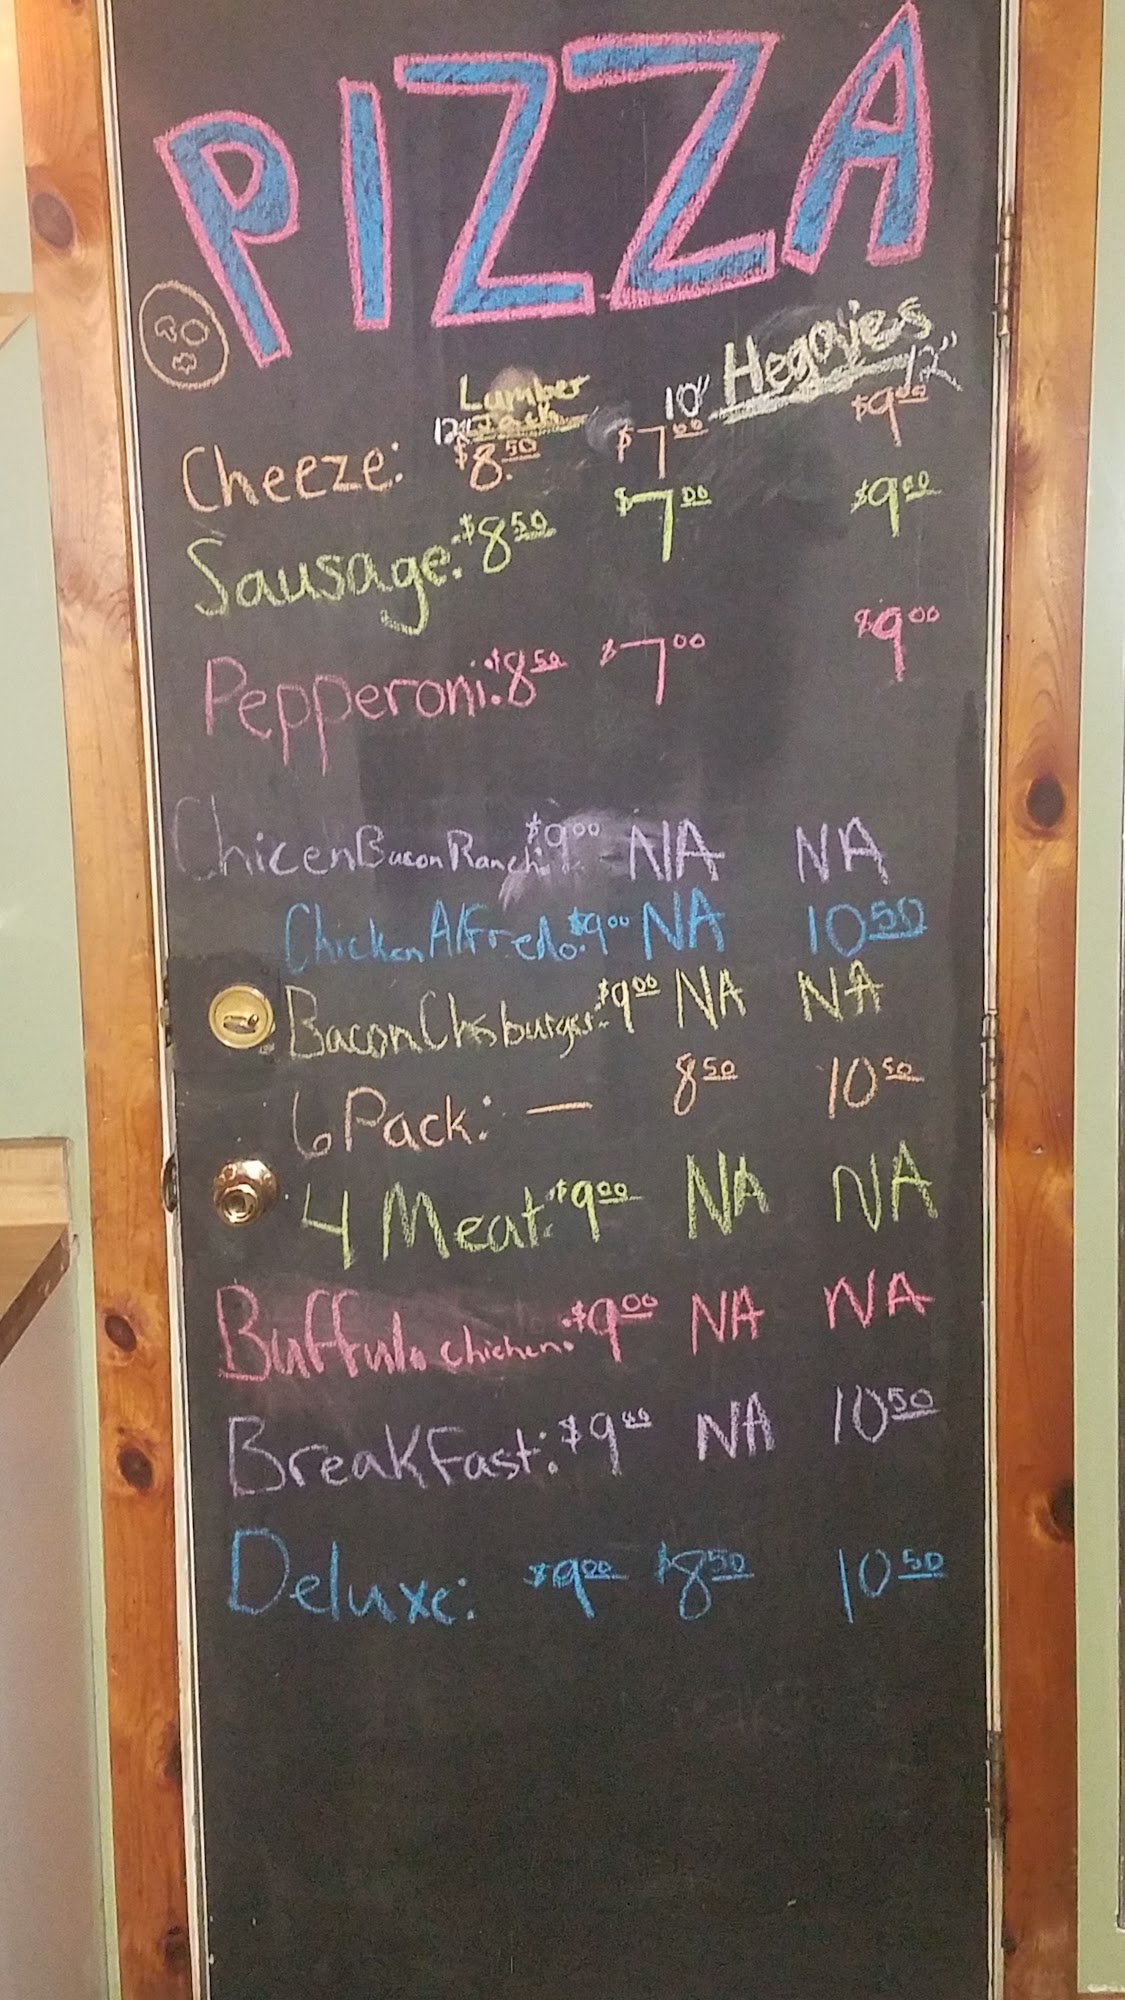 PIZZA
Lumber Jack 12" 10" Heggies 12"
Cheeze: $8.50 $7.00 $9.00
Sausage: $8.50 $7.00 $9.00
Pepperoni: $8.50 $7.00 $9.00
Chicen Bacon Ranch: $9.00 NA NA
Chicken Alfredo: $9.00 NA 10.50
Bacon Chsburger: $9.00 NA NA
6 Pack: — 8.50 10.50
4 Meat: $9.00 NA NA
Buffulo chicken: $9.00 NA NA
BreakFast: $9.00 NA 10.50
Deluxe: $9.00 $8.50 10.50